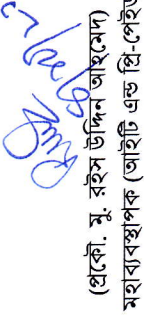 (প্রকৌ. মু. রইস উদ্দিন আহমেদ)
মহাব্যবস্থাপক (আইটি এন্ড প্রি-পেইড